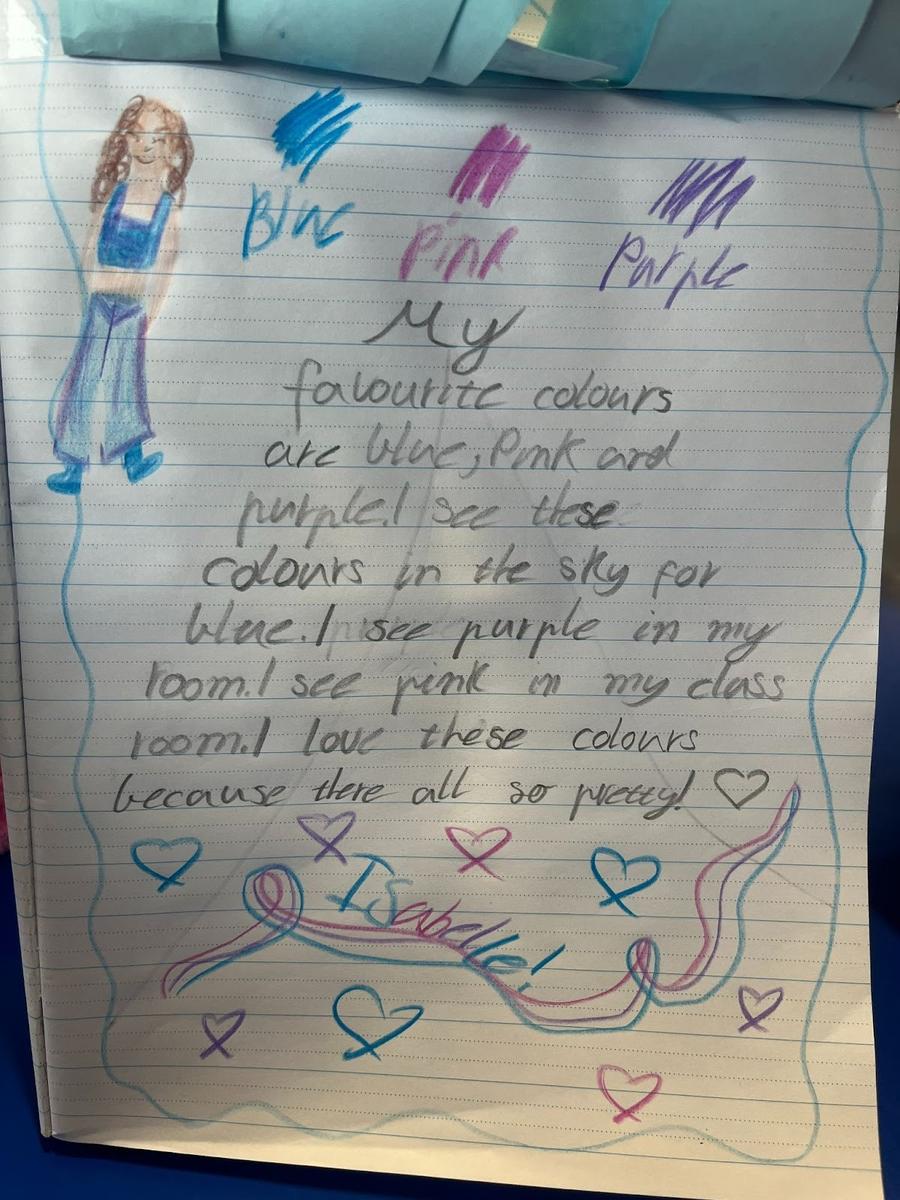 Blue
Pink
Purple
My
favourite colours
are blue, Pink and
purple. I see these
colours in the sky for
blue. I see purple in my
room. I see pink in my class
room. I love these colours
because there all so pretty!
Isabelle!